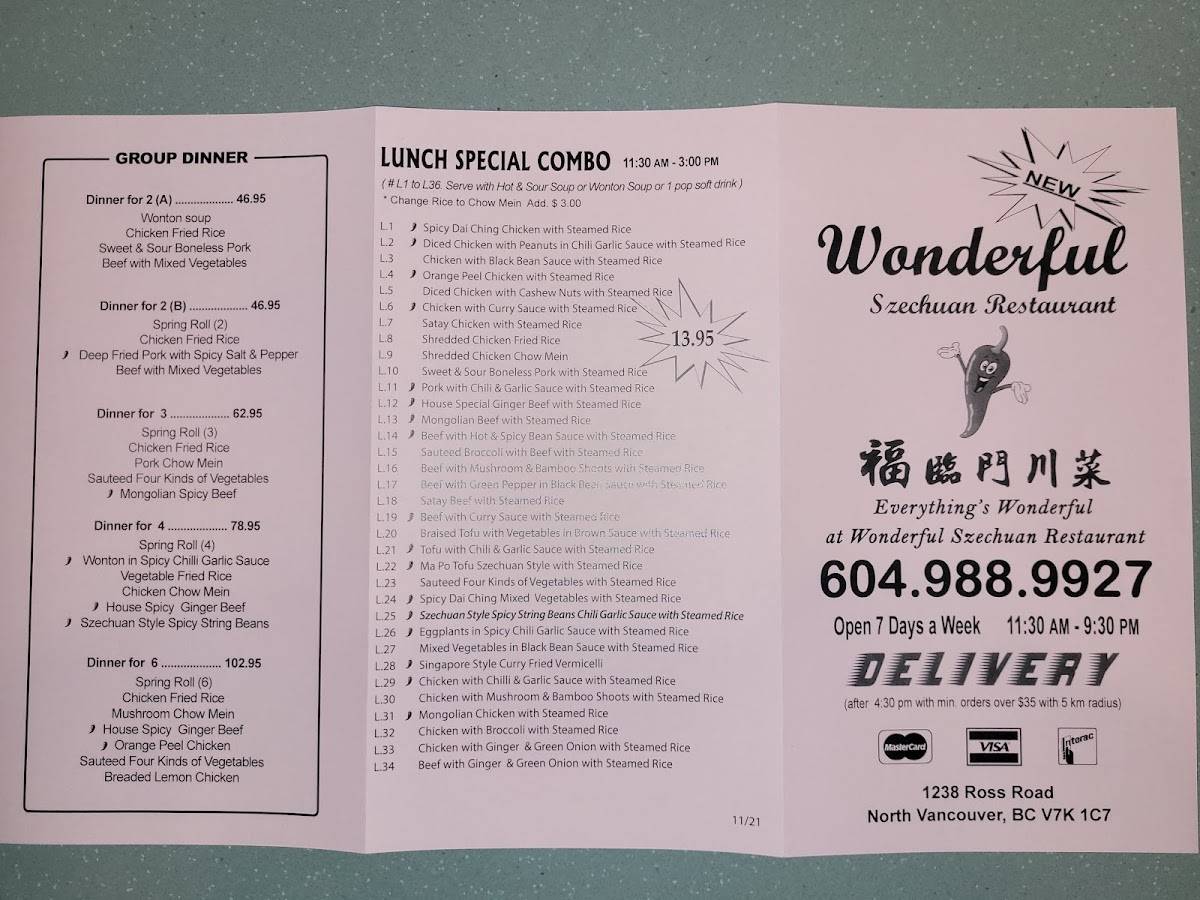 GROUP DINNER
Dinner for 2 (A) .................. 46.95
Wonton soup
Chicken Fried Rice
Sweet & Sour Boneless Pork
Beef with Mixed Vegetables
Dinner for 2 (B) .................. 46.95
Spring Roll (2)
Chicken Fried Rice
Deep Fried Pork with Spicy Salt & Pepper
Beef with Mixed Vegetables
Dinner for 3 .................. 62.95
Spring Roll (3)
Chicken Fried Rice
Pork Chow Mein
Sauteed Four Kinds of Vegetables
Mongolian Spicy Beef
Dinner for 4 .................. 78.95
Spring Roll (4)
Wonton in Spicy Chilli Garlic Sauce
Vegetable Fried Rice
Chicken Chow Mein
House Spicy Ginger Beef
Szechuan Style Spicy String Beans
Dinner for 6 .................. 102.95
Spring Roll (6)
Chicken Fried Rice
Mushroom Chow Mein
House Spicy Ginger Beef
Orange Peel Chicken
Sauteed Four Kinds of Vegetables
Breaded Lemon Chicken
LUNCH SPECIAL COMBO 11:30 AM - 3:00 PM
( # L1 to L36. Serve with Hot & Sour Soup or Wonton Soup or 1 pop soft drink )
* Change Rice to Chow Mein Add. $ 3.00
L.1 Spicy Dai Ching Chicken with Steamed Rice
L.2 Diced Chicken with Peanuts in Chili Garlic Sauce with Steamed Rice
L.3 Chicken with Black Bean Sauce with Steamed Rice
L.4 Orange Peel Chicken with Steamed Rice
L.5 Diced Chicken with Cashew Nuts with Steamed Rice
L.6 Chicken with Curry Sauce with Steamed Rice
L.7 Satay Chicken with Steamed Rice
L.8 Shredded Chicken Fried Rice
L.9 Shredded Chicken Chow Mein
L.10 Sweet & Sour Boneless Pork with Steamed Rice
L.11 Pork with Chili & Garlic Sauce with Steamed Rice
L.12 House Special Ginger Beef with Steamed Rice
L.13 Mongolian Beef with Steamed Rice
L.14 Beef with Hot & Spicy Bean Sauce with Steamed Rice
L.15 Sauteed Broccoli with Beef with Steamed Rice
L.16 Beef with Mushroom & Bamboo Shoots with Steamed Rice
L.17 Beef with Green Pepper in Black Bean Sauce with Steamed Rice
L.18 Satay Beef with Steamed Rice
L.19 Beef with Curry Sauce with Steamed Rice
L.20 Braised Tofu with Vegetables in Brown Sauce with Steamed Rice
L.21 Tofu with Chili & Garlic Sauce with Steamed Rice
L.22 Ma Po Tofu Szechuan Style with Steamed Rice
L.23 Sauteed Four Kinds of Vegetables with Steamed Rice
L.24 Spicy Dai Ching Mixed Vegetables with Steamed Rice
L.25 Szechuan Style Spicy String Beans Chili Garlic Sauce with Steamed Rice
L.26 Eggplants in Spicy Chili Garlic Sauce with Steamed Rice
L.27 Mixed Vegetables in Black Bean Sauce with Steamed Rice
L.28 Singapore Style Curry Fried Vermicelli
L.29 Chicken with Chilli & Garlic Sauce with Steamed Rice
L.30 Chicken with Mushroom & Bamboo Shoots with Steamed Rice
L.31 Mongolian Chicken with Steamed Rice
L.32 Chicken with Broccoli with Steamed Rice
L.33 Chicken with Ginger & Green Onion with Steamed Rice
L.34 Beef with Ginger & Green Onion with Steamed Rice
13.95
11/21
NEW
Wonderful
Szechuan Restaurant
福臨門川菜
Everything's Wonderful
at Wonderful Szechuan Restaurant
604.988.9927
Open 7 Days a Week 11:30 AM - 9:30 PM
DELIVERY
(after 4:30 pm with min. orders over $35 with 5 km radius)
MasterCard VISA Interac
1238 Ross Road
North Vancouver, BC V7K 1C7